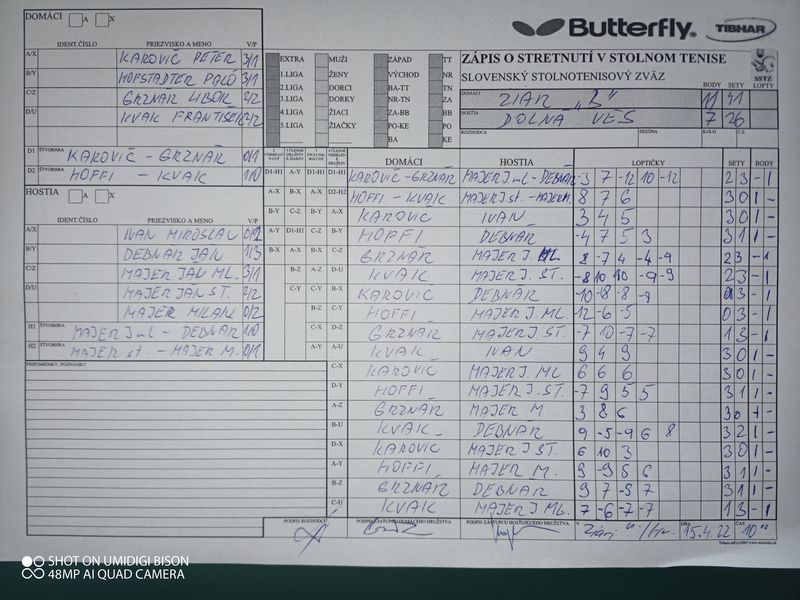 DOMÁCI A X
Butterfly. TIBHAR
IDENT.ČÍSLO PRIEZVISKO A MENO V/P
A/X KAROVIČ PETER 3/1
B/Y HOFSTADTER PALO 3/1
C/Z GRZNÁR LIBOR 2/2
D/U KVAK FRANTIŠEK 2/2
D1 ŠTVORHRA KAROVIČ - GRZNÁR 0/1
D2 ŠTVORHRA HOFFI - KVAK 1/0
HOSTIA A X
IDENT.ČÍSLO PRIEZVISKO A MENO V/P
A/X IVAN MIROSLAV 0/2
B/Y DEBNÁR JÁN 1/3
C/Z MAJER JÁN ML. 3/1
D/U MAJER JÁN ST. 2/2
MAJER MILAN 0/2
H1 ŠTVORHRA MAJER J ml - DEBNÁR 1/0
H2 ŠTVORHRA MAJER st. - MAJER M. 0/1
PRIPOMIENKY, POZNÁMKY
EXTRA MUŽI ZÁPAD TT
1.LIGA ŽENY VÝCHOD NR
2.LIGA DORCI BA-TT TN
3.LIGA DORKY NR-TN ZA
4.LIGA ŽIACI ZA-BB BB
5.LIGA ŽIAČKY PO-KE PO
BA KE
ZÁPIS O STRETNUTÍ V STOLNOM TENISE
SLOVENSKÝ STOLNOTENISOVÝ ZVÄZ
SSTZ
BODY SETY LOPTY
DOMÁCI ŽIAR "B" 11 41
HOSTIA DOLNÁ VES 7 26
ROZHODCA SEZÓNA KOLO Č.Z.
DOMÁCI HOSTIA LOPTIČKY SETY BODY
D1-H1 A-Y D1-H1 D1-H1 KAROVIČ-GRZNÁR MAJER J ml - DEBNÁR -3 7 -12 10 -12 2 3 - 1
A-X B-X A-X D2-H2 HOFFI - KVAK MAJER J st. - MAJER M. 8 7 6 3 0 1 -
B-Y C-Z B-Y A-X KAROVIČ IVAN 3 4 5 3 0 1 -
A-Y D1-H1 C-Z B-Y HOFFI DEBNÁR -4 7 5 3 3 1 1 -
B-X A-X B-X C-Z GRZNÁR MAJER J. ML 8 -7 4 -4 -9 2 3 - 1
B-Z A-Z D-U KVAK MAJER J. ST. -8 10 10 -9 -9 2 3 - 1
C-Y C-Y B-X KAROVIČ DEBNÁR -10 -18 -8 -9 3 - 1
B-Z C-Y HOFFI MAJER J. ML -12 -6 -5 0 3 - 1
C-X D-Z GRZNÁR MAJER J. ST. -7 10 -7 -7 1 3 - 1
A-Y A-U KVAK IVAN 9 4 9 3 0 1 -
C-X KAROVIČ MAJER J. ML 6 6 6 3 0 1 -
D-Y HOFFI MAJER J. ST. -7 9 5 5 3 1 1 -
A-Z GRZNÁR MAJER M. 3 8 6 3 0 1 -
B-U KVAK DEBNÁR 9 -5 -9 6 8 3 2 1 -
D-X KAROVIČ MAJER J ST. 6 10 3 3 0 1 -
A-Y HOFFI MAJER M. 9 -9 5 6 3 1 1 -
B-Z GRZNÁR DEBNÁR 9 7 -5 7 3 1 1 -
C-U KVAK MAJER J ML. -7 -6 -7 -7 1 3 - 1
PODPIS ROZHODCU PODPIS ZÁSTUPCU DOMÁCEHO DRUŽSTVA PODPIS ZÁSTUPCU HOSŤUJÚCEHO DRUŽSTVA V Žiari n/Hr. DŇA 15.4.22 ČAS 10 00
SHOT ON UMIDIGI BISON
48MP AI QUAD CAMERA